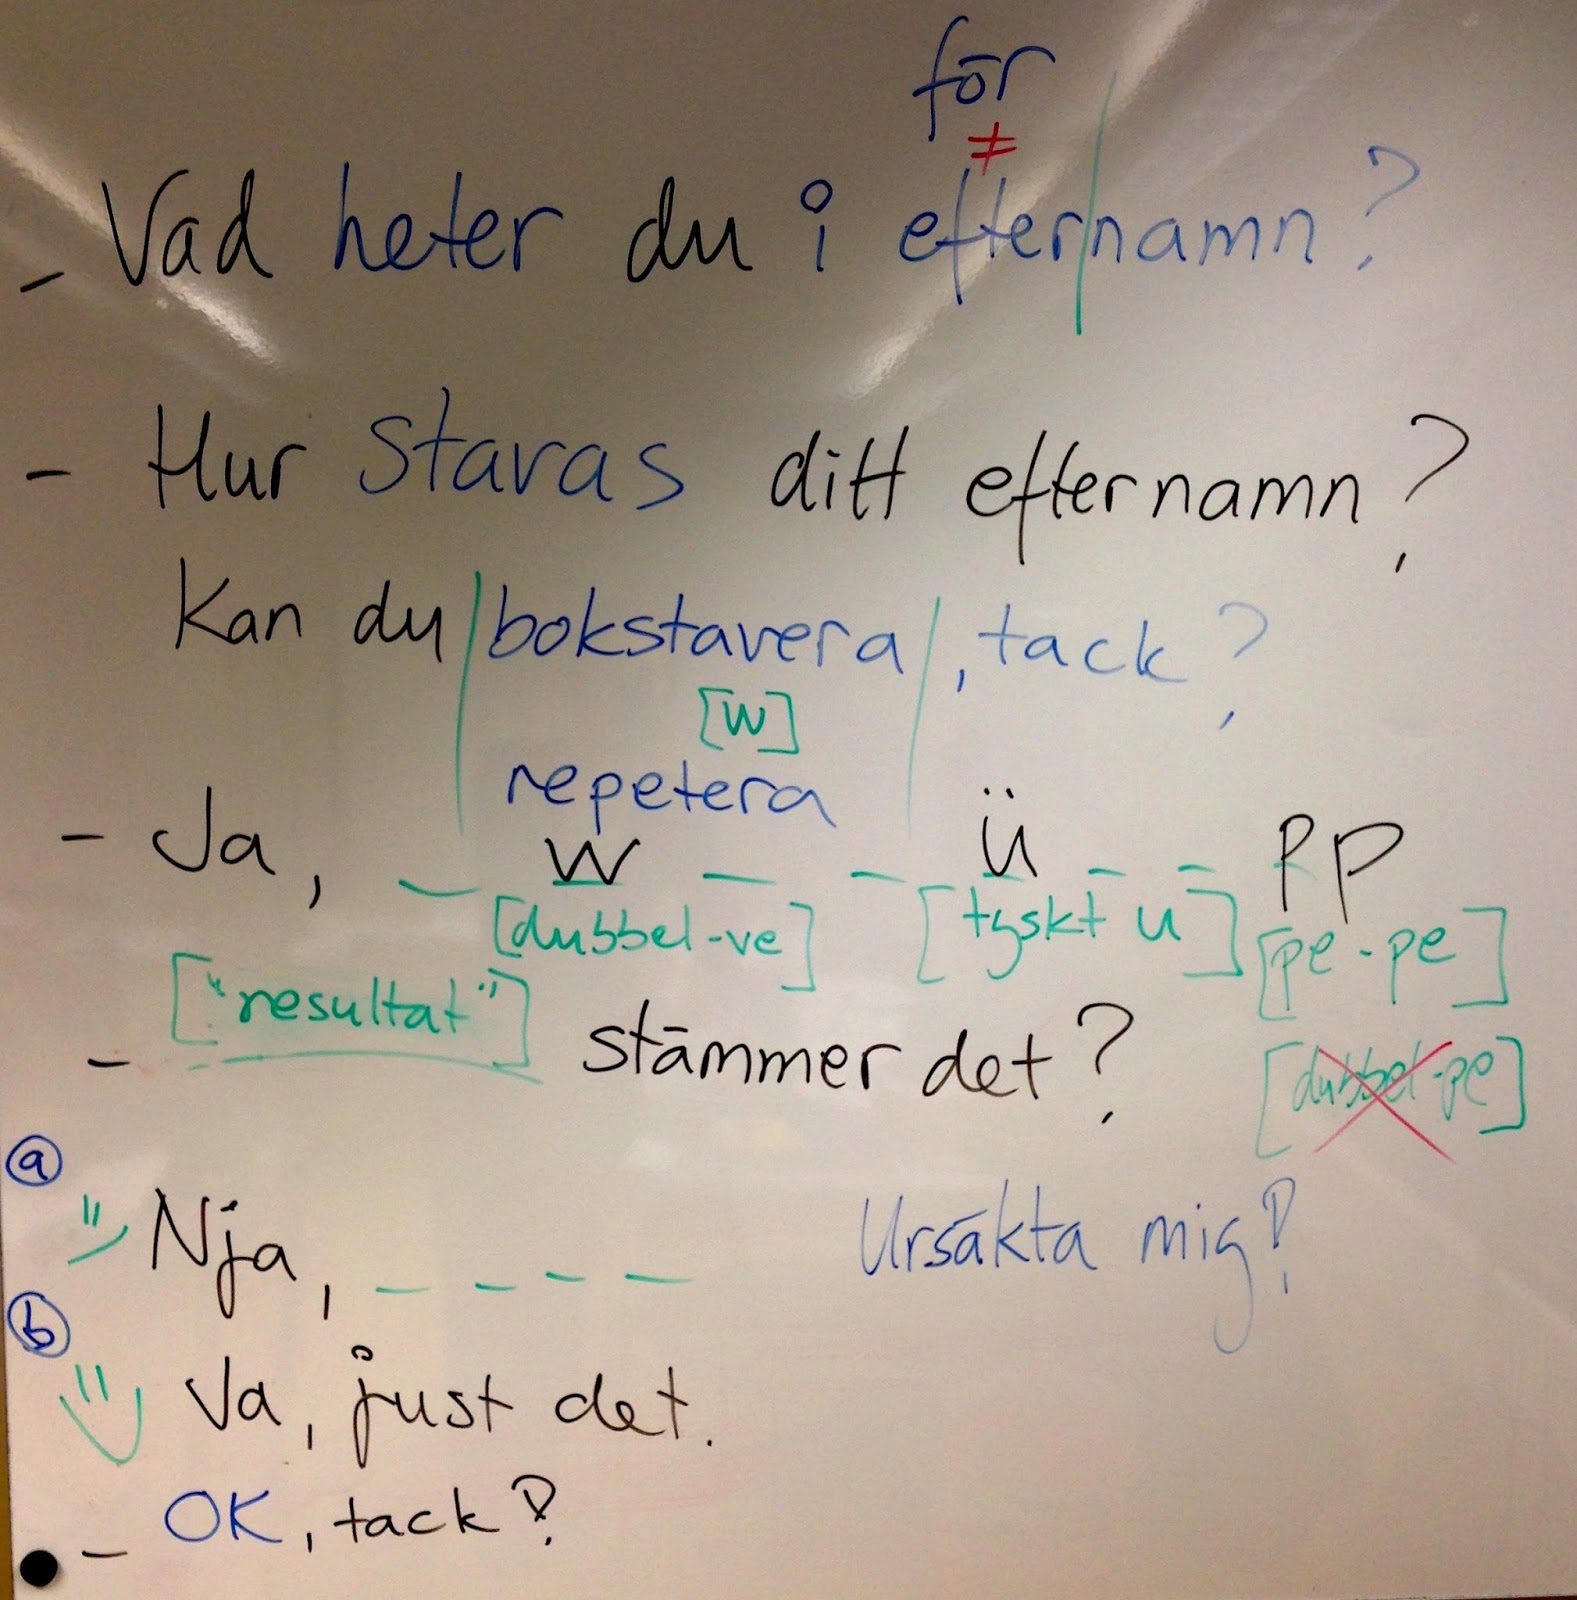 för
≠
- Vad heter du i efter|namn?
- Hur stavas ditt efternamn?
Kan du |bokstavera|, tack?
[w]
repetera
- Ja, _ w _ _ ü _ _ pp
[dubbel-ve] [tyskt u] [pe-pe]
- ["resultat"] stämmer det?
[dubbel-pe]
a
Nja, _ _ _ _ Ursäkta mig?
b
Ja, just det.
- OK, tack!